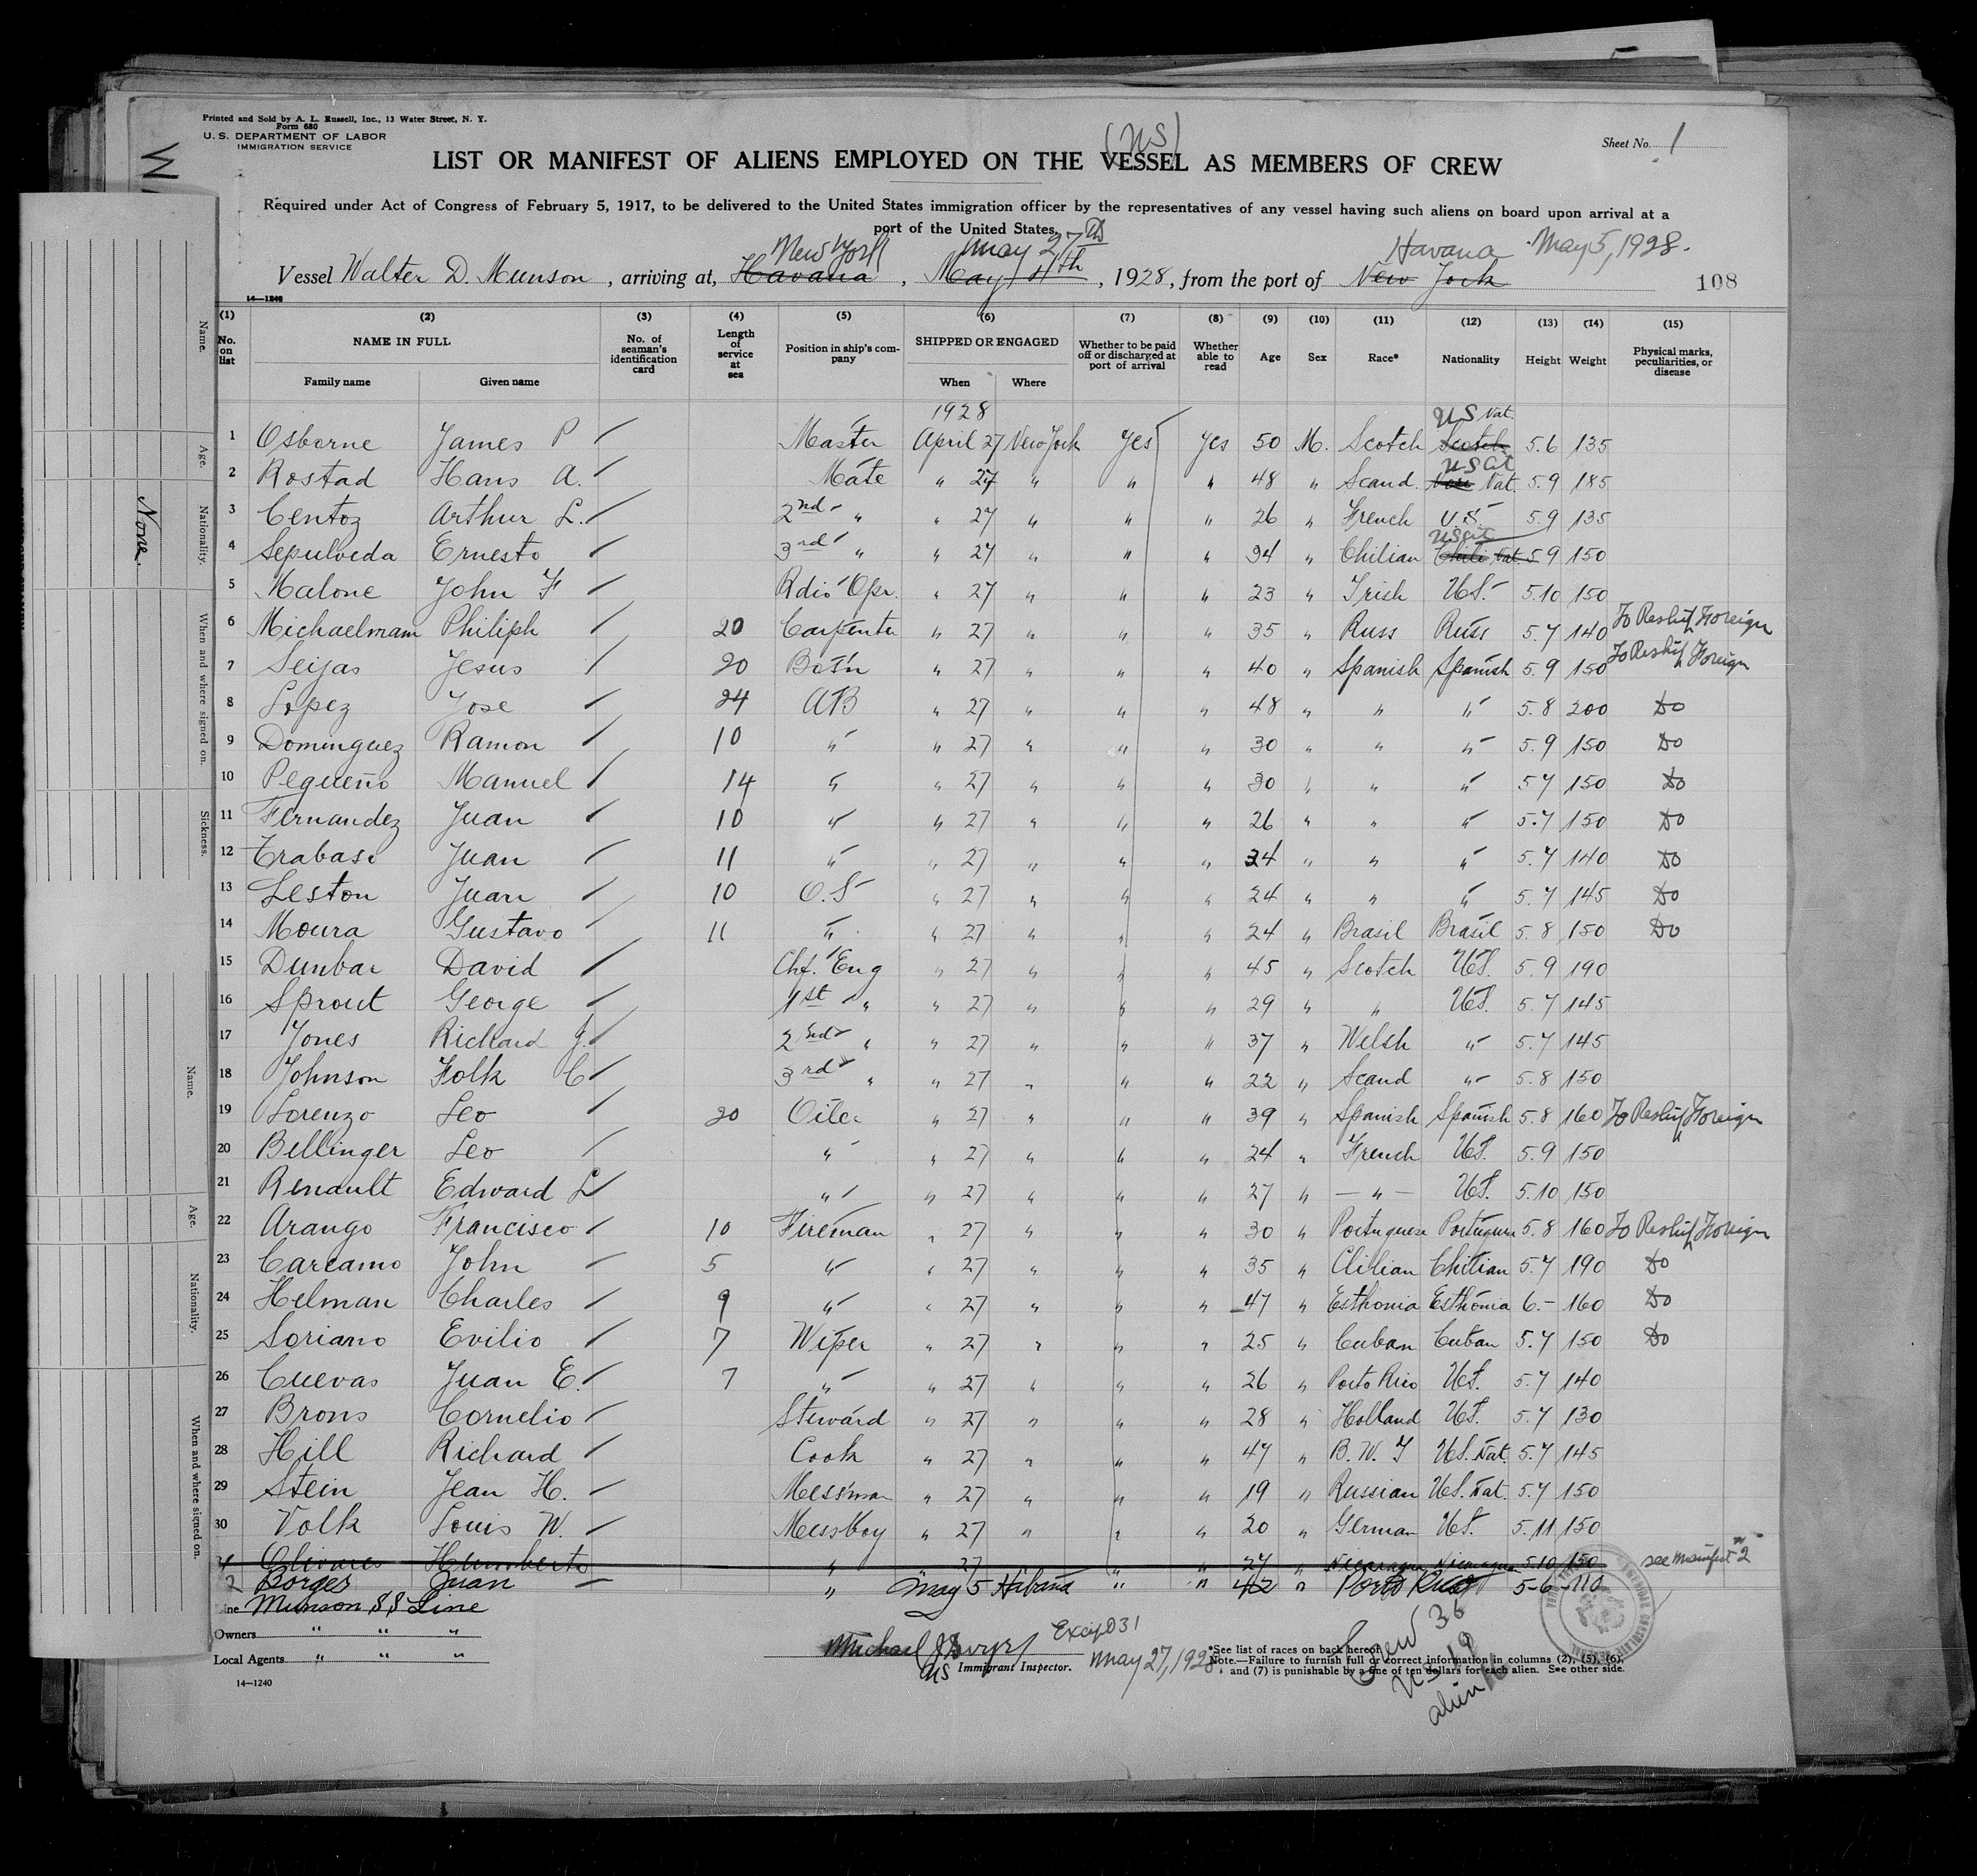 Printed and Sold by A. L. Russell, Inc., 13 Water Street, N. Y.
Form 680
U. S. DEPARTMENT OF LABOR
IMMIGRATION SERVICE
Sheet No. 1
(US)
LIST OR MANIFEST OF ALIENS EMPLOYED ON THE VESSEL AS MEMBERS OF CREW
Required under Act of Congress of February 5, 1917, to be delivered to the United States immigration officer by the representatives of any vessel having such aliens on board upon arrival at a
port of the United States.
New York May 27th Havana May 5, 1928.
Vessel Walter D. Munson, arriving at, Havana, May 4th, 1928, from the port of New York
108
14—1240
(1) (2) (3) (4) (5) (6) (7) (8) (9) (10) (11) (12) (13) (14) (15)
No. on list NAME IN FULL No. of seaman's identification card Length of service at sea Position in ship's company SHIPPED OR ENGAGED Whether to be paid off or discharged at port of arrival Whether able to read Age Sex Race* Nationality Height Weight Physical marks, peculiarities, or disease
Family name Given name When Where
1928 US Nat.
1 Osborne James P Master April 27 New York Yes Yes 50 M. Scotch Scotch 5.6 135
US Cit
2 Rostad Hans A. Mate " 27 " " " 48 " Scand. Nat. 5.9 185
3 Centoz Arthur L. 2nd " " 27 " " " 26 " French U.S. 5.9 135
US Cit
4 Sepulveda Ernesto 3rd " " 27 " " " 34 " Chilian Chili Nat. 5.9 150
5 Malone John F Rdio Opr. " 27 " " " 23 " Irish US. 5.10 150
6 Michaelmam Philiph 20 Carpenter " 27 " " " 35 " Russ Russ 5.7 140 To Reship Foreign
7 Seijas Jesus 20 Bots'n " 27 " " " 40 " Spanish Spanish 5.9 150 To Reship Foreign
8 Lopez Jose 24 AB " 27 " " " 48 " " " 5.8 200 Do
9 Dominguez Ramon 10 " " 27 " " " 30 " " " 5.9 150 Do
10 Pequeño Manuel 14 " " 27 " " " 30 " " " 5.7 150 Do
11 Fernandez Juan 10 " " 27 " " " 26 " " " 5.7 150 Do
12 Trabaso Juan 11 " " 27 " " " 34 " " " 5.7 140 Do
13 Leston Juan 10 O.S " 27 " " " 24 " " " 5.7 145 Do
14 Moura Gustavo 11 " " 27 " " " 24 " Brasil Brasil 5.8 150 Do
15 Dunbar David Chf. Eng " 27 " " " 45 " Scotch US. 5.9 190
16 Sprout George 1st " " 27 " " " 29 " " US. 5.7 145
17 Jones Richard J. 2nd " " 27 " " " 37 " Welsh " 5.7 145
18 Johnson Folk C 3rd " " 27 " " " 22 " Scand " 5.8 150
19 Lorenzo Leo 20 Oiler " 27 " " " 39 " Spanish Spanish 5.8 160 To Reship Foreign
20 Bellinger Leo " " 27 " " " 24 " French US. 5.9 150
21 Renault Edward L " " 27 " " " 27 " — " — US. 5.10 150
22 Arango Francisco 10 Fireman " 27 " " " 30 " Portuguese Portuguese 5.8 160 To Reship Foreign
23 Carcamo John 5 " " 27 " " " 35 " Chilian Chilian 5.7 190 Do
24 Helman Charles 9 " " 27 " " " 47 " Esthonia Esthonia 6.- 160 Do
25 Soriano Evilio 7 Wiper " 27 " " " 25 " Cuban Cuban 5.7 150 Do
26 Cuevas Juan E. 7 " " 27 " " " 26 " Porto Rico US. 5.7 140
27 Brons Cornelio Steward " 27 " " " 28 " Holland US. 5.7 130
28 Hill Richard Cook " 27 " " " 47 " B. W. I US. Nat. 5.7 145
29 Stein Jean H. Messman " 27 " " " 19 " Russian US. Nat. 5.7 150
30 Volk Louis W. Messboy " 27 " " " 20 " German US. 5.11 150
Olivares Humberto " 27 " " 27 " Nicaragua Nicaragua 5.10 150 see Manifest 2
2 Borges Juan " May 5 Habana " " 42 " Porto Rico 5-6 110
Line Munson SS Line
Owners " " "
Local Agents " " "
14—1240
May 27, 1928.
US Immigrant Inspector.
*See list of races on back hereof.
Note.—Failure to furnish full or correct information in columns (2), (5), (6),
and (7) is punishable by a fine of ten dollars for each alien. See other side.
Crew
US 19
alien
Name.
Age.
Nationality.
None.
When and where signed on.
Sickness.
Name.
Age.
Nationality.
When and where signed on.